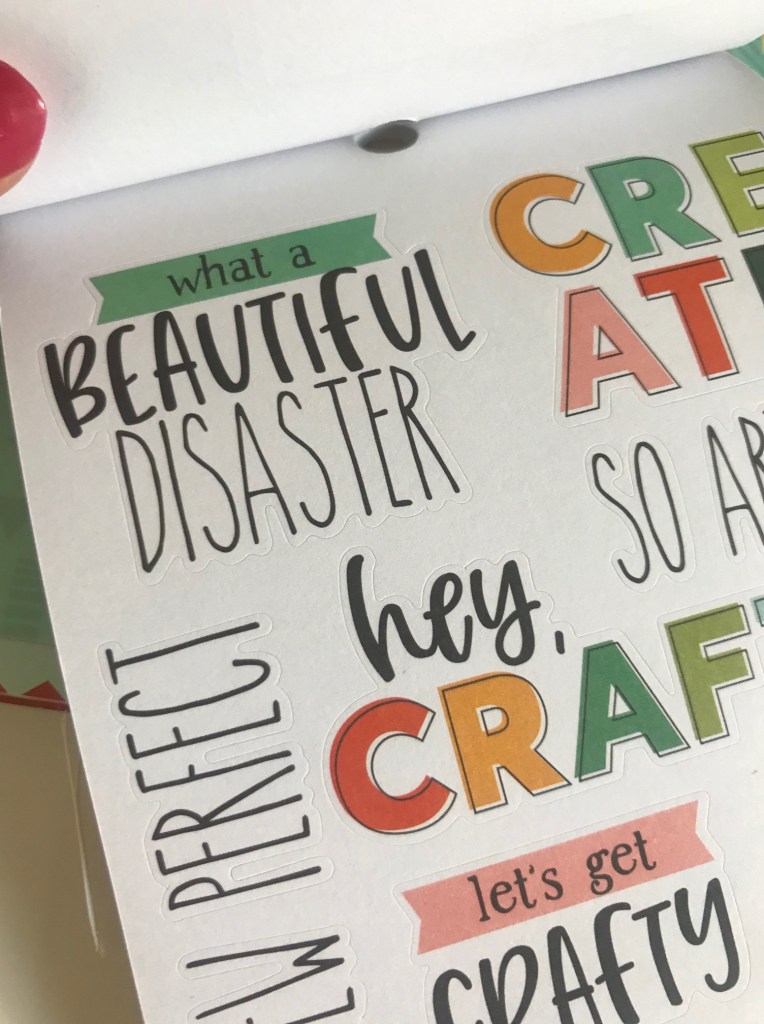 what a
BEAUTIFUL
DISASTER
CRE
AT
SO
hey,
CRAF
PERFECT
let's get
CRAFTY